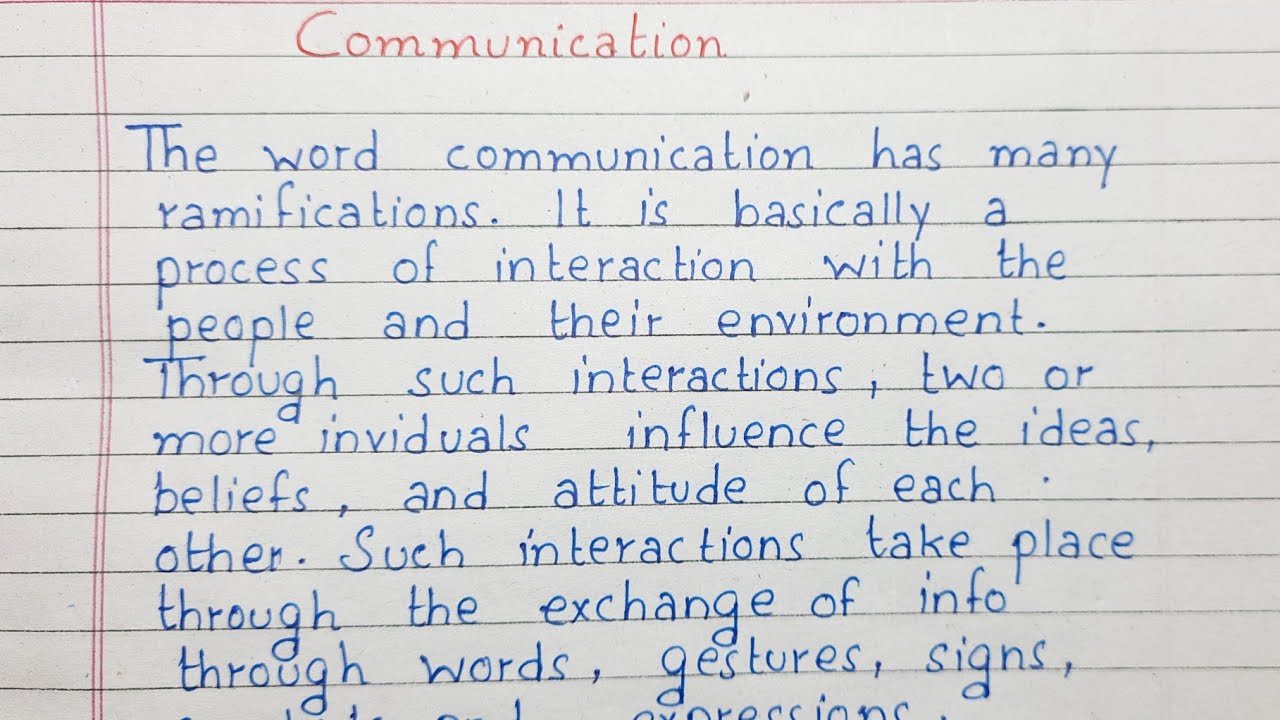 Communication
The word communication has many
ramifications. It is basically a
process of interaction with the
people and their environment.
Through such interactions, two or
more inviduals influence the ideas,
beliefs, and attitude of each
other. Such interactions take place
through the exchange of info
through words, gestures, signs,
and expressions.